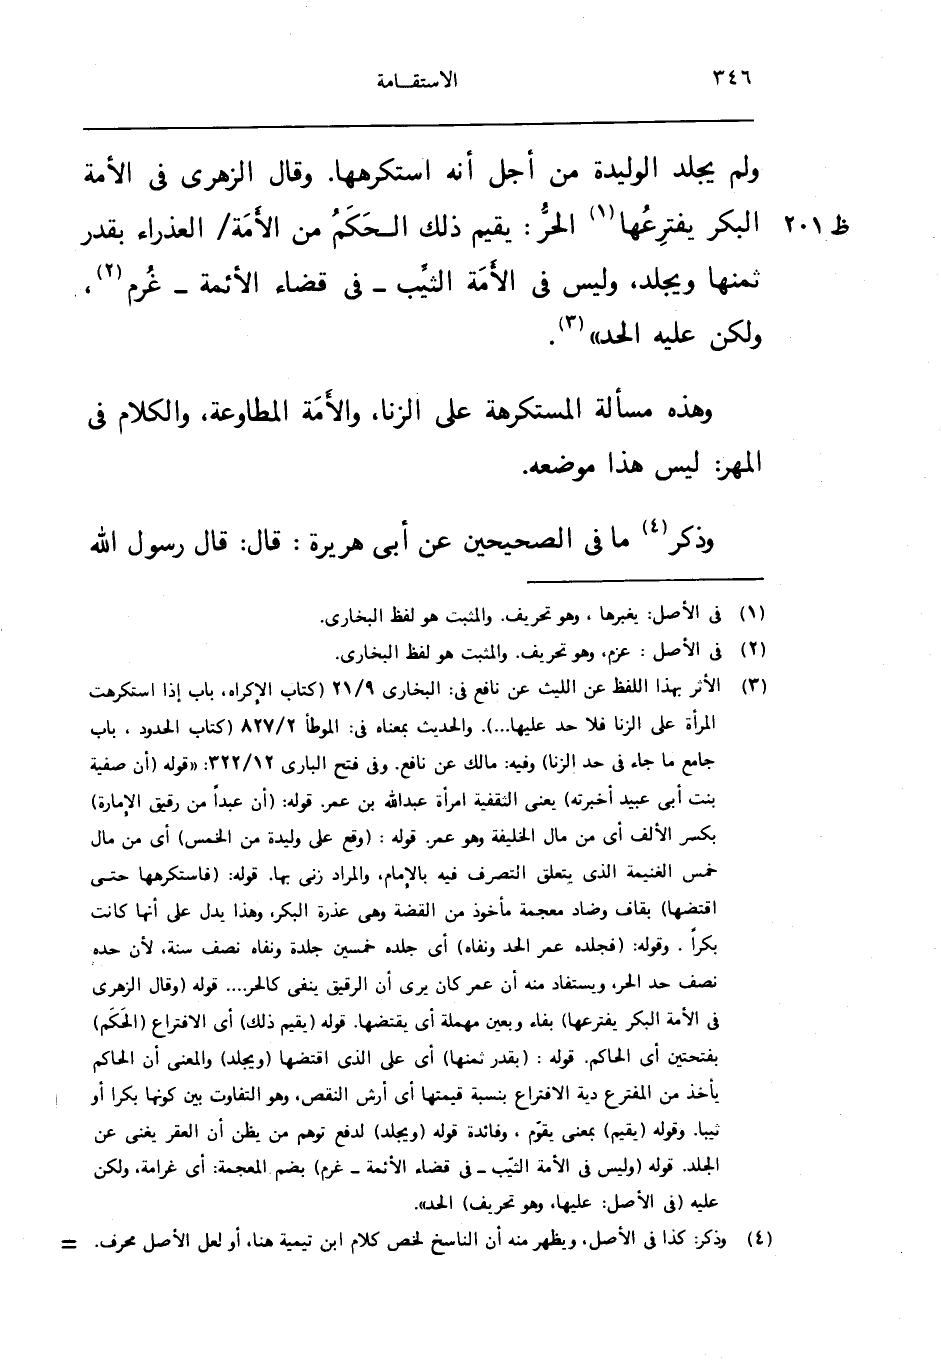 ٣٤٦
الاستقـامة
ولم يجلد الوليدة من أجل أنه استكرهها. وقال الزهرى فى الأمة
البكر يفترِعُها(١) الحرُّ : يقيم ذلك الـحَكَمُ من الأَمَة/ العذراء بقدر
ظ ٢٠١
ثمنها ويجلد، وليس فى الأَمَة الثيِّب ـ فى قضاء الأئمة ـ غُرم(٢)،
ولكن عليه الحد»(٣).
وهذه مسألة المستكرهة على الزنا، والأَمَة المطاوعة، والكلام فى
المهر: ليس هذا موضعه.
وذكر(٤) ما فى الصحيحين عن أبى هريرة : قال: قال رسول الله
(١) فى الأصل: يغبرها ، وهو تحريف. والمثبت هو لفظ البخارى.
(٢) فى الأصل : عزم، وهو تحريف. والمثبت هو لفظ البخارى.
(٣) الأثر بهذا اللفظ عن الليث عن نافع فى: البخارى ٢١/٩ (كتاب الإكراه، باب إذا استكرهت
المرأة على الزنا فلا حد عليها...). والحديث بمعناه فى: الموطأ ٨٢٧/٢ (كتاب الحدود ، باب
جامع ما جاء فى حد الزنا) وفيه: مالك عن نافع. وفى فتح البارى ٣٢٢/١٢: «قوله (أن صفية
بنت أبى عبيد أخبرته) يعنى الثقفية امرأة عبدالله بن عمر. قوله: (أن عبداً من رقيق الإمارة)
بكسر الألف أى من مال الخليفة وهو عمر. قوله : (وقع على وليدة من الخمس) أى من مال
خمس الغنيمة الذى يتعلق التصرف فيه بالإمام، والمراد زنى بها. قوله: (فاستكرهها حتـى
اقتضها) بقاف وضاد معجمة مأخوذ من القضة وهى عذرة البكر، وهذا يدل على أنها كانت
بكراً . وقوله: (فجلده عمر الحد ونفاه) أى جلده خمسين جلدة ونفاه نصف سنة، لأن حده
نصف حد الحر، ويستفاد منه أن عمر كان يرى أن الرقيق ينفى كالحر.... قوله (وقال الزهرى
فى الأمة البكر يفترعها) بفاء وبعين مهملة أى يقتضها. قوله (يقيم ذلك) أى الافتراع (الحَكَم)
بفتحتين أى الحاكم. قوله : (بقدر ثمنها) أى على الذى اقتضها (ويجلد) والمعنى أن الحاكم
يأخذ من المفترع دية الافتراع بنسبة قيمتها أى أرش النقص، وهو التفاوت بين كونها بكرا أو
ثيبا. وقوله (يقيم) بمعنى يقوّم ، وفائدة قوله (ويجلد) لدفع توهم من يظن أن العقر يغنى عن
الجلد. قوله (وليس فى الأمة الثيّب ـ فى قضاء الأئمة ـ غرم) بضم المعجمة: أى غرامة، ولكن
عليه (فى الأصل: عليها، وهو تحريف) الحد».
(٤) وذكر: كذا فى الأصل، ويظهر منه أن الناسخ لخص كلام ابن تيمية هنا، أو لعل الأصل محرف. =